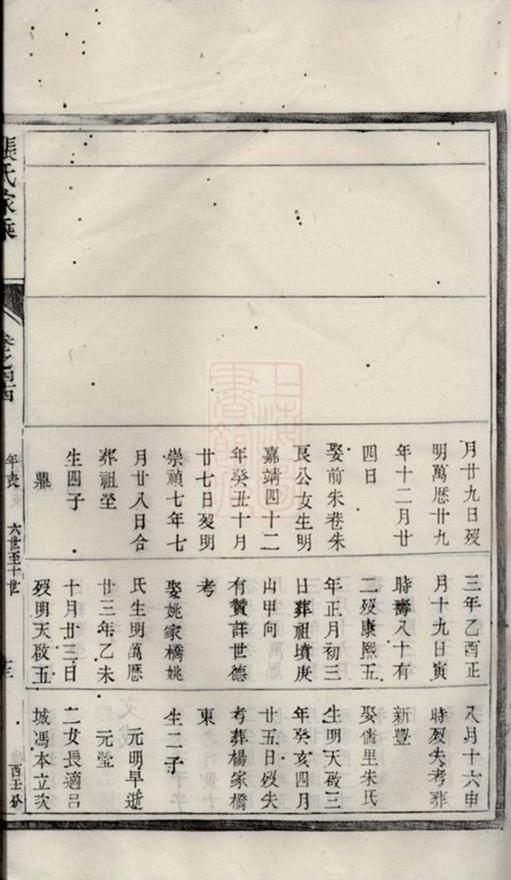 月廿九日歿
明萬歷廿九
年十二月廿
四日
娶前朱巷朱
艮公女生明
嘉靖四十二
年癸丑十月
廿七日歿明
崇禎七年七
月廿八日合
葬祖塋
生四子
鼎
三年乙酉正
月十九日寅
時壽八十有
二歿康熙五
年正月初三
日葬祖墳庚
山甲向
有贊詳世德
考
娶姚家橋姚
氏生明萬歷
廿三年乙未
十月廿三日
歿明天啟五
八月十六申
時歿失考葬
新豐
娶儒里朱氏
生明天啟三
年癸亥四月
廿五日歿失
考葬楊家橋
東
生二子
元明早逝
元瑩
二女長適呂
城馮本立次
張氏家乘
年表
六世至十世